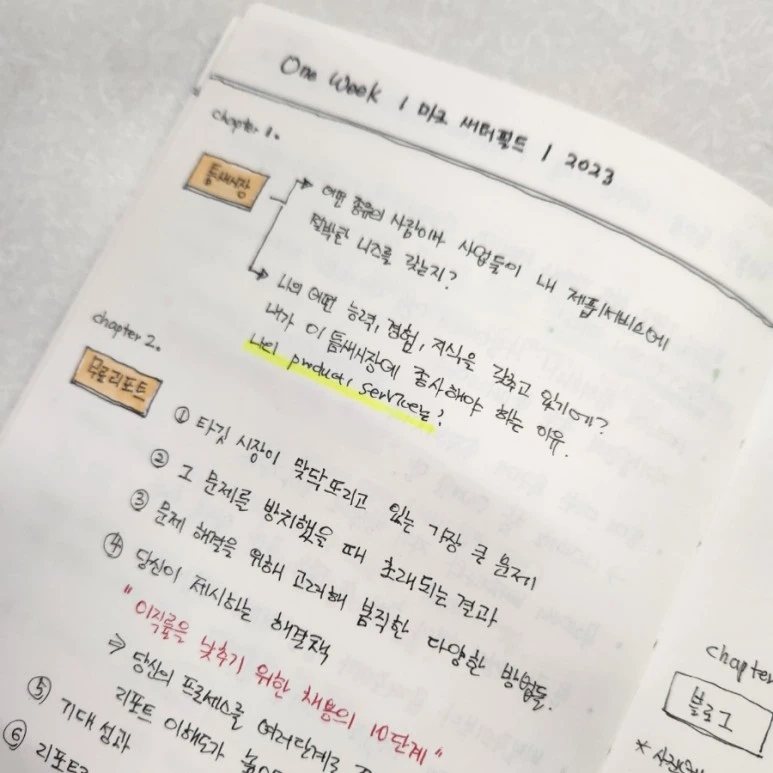 One Week / 마크 새터필드 / 2023
chapter 1.
틈새시장
어떤 종류의 사람이나 사업들이 내 제품/서비스에
절박한 니즈를 갖는지?
나의 어떤 능력, 경험, 지식을 갖추고 있기에?
내가 이 틈새시장에 종사해야 하는 이유.
나의 product, service는?
chapter 2.
무료리포트
① 타깃 시장이 맞닥뜨리고 있는 가장 큰 문제
② 그 문제를 방치했을 때 초래되는 결과
③ 문제 해결을 위해 고려해 봄직한 다양한 방법들.
④ 당신이 제시하는 해결책
"이직률을 낮추기 위한 채용의 10단계"
⇒ 당신의 프로세스를 여러단계로
리포트 이해도가
⑤ 기대 성과
⑥
chapter
블로그
*